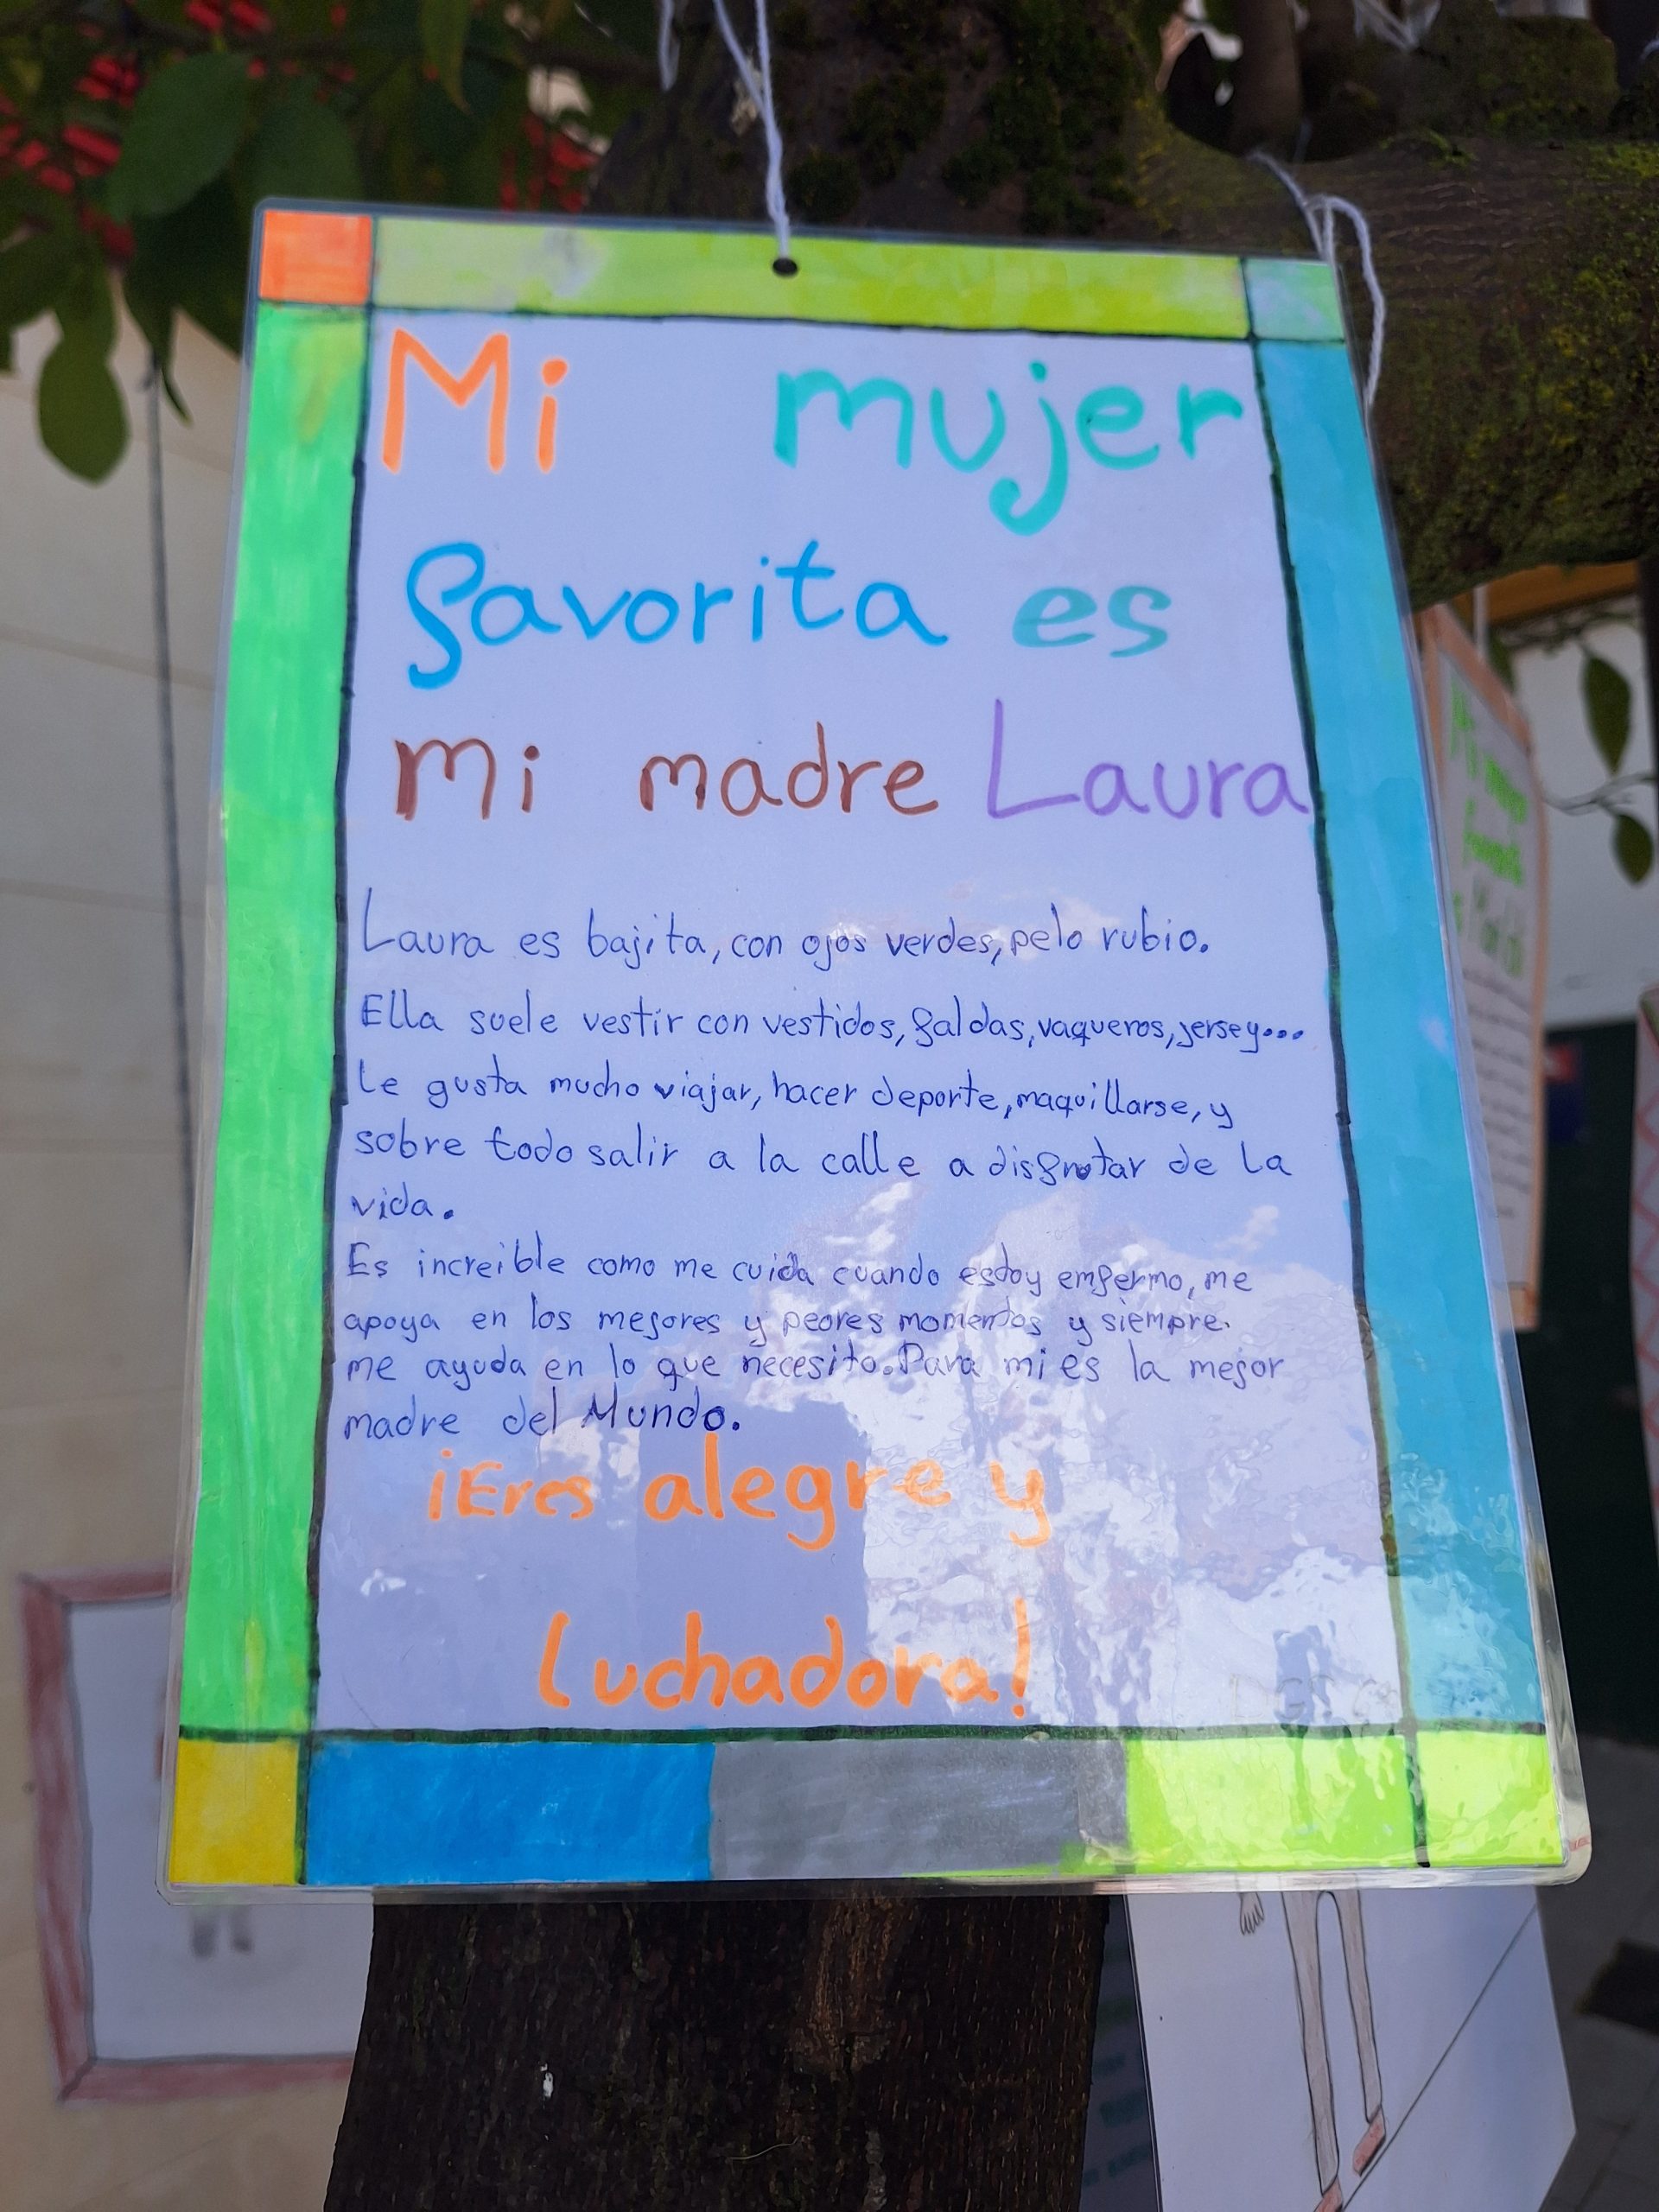 Mi mujer
favorita es
mi madre Laura
Laura es bajita, con ojos verdes, pelo rubio.
Ella suele vestir con vestidos, faldas, vaqueros, jersey...
Le gusta mucho viajar, hacer deporte, maquillarse, y
sobre todo salir a la calle a disfrutar de la
vida.
Es increible como me cuida cuando estoy enfermo, me
apoya en los mejores y peores momentos y siempre.
me ayuda en lo que necesito. Para mi es la mejor
madre del Mundo.
¡Eres alegre y
luchadora!